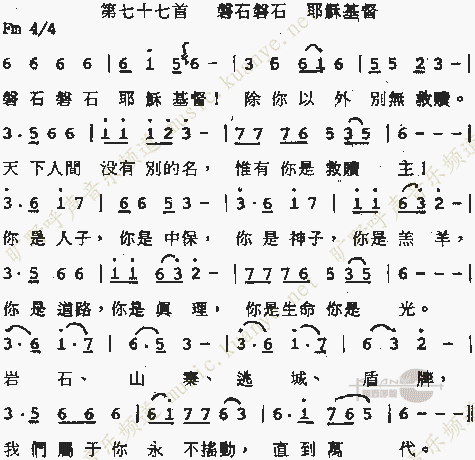 第七十七首 磐石磐石 耶穌基督
Fm 4/4
6 6 6 6 | 6 i 56 – | 3 6 6i 6 | 55 23 – |
磐石磐石 耶穌基督！ 除你以外 別無救贖。
3·5 6 6 | i i i 2 3 – | 7 7 7 6 5 3 5 | 6 – – – |
天下人間 沒有別的名， 惟有你是救贖 主！
3·6 i 7 | 6 6 5 3 – | 3·6 i 7 | i i 6 3 2 – |
你是人子，你是中保， 你是神子，你是羔羊，
3·5 6 6 | i i 6 3 2 – | 7 7 7 6 5 3 5 | 6 – – – |
你是道路，你是眞理， 你是生命你是 光。
3·6 i·7 | 6·5 3 – | 3·6 i·7 | 6 3 2 – |
岩石、山寨、逃城、盾牌，
3·5 6 6 6 | 6 i 7 7 6 3 | 6·i 7 6 5 | 6 – – – |
我們屬于你永不搖動，直到萬 代。